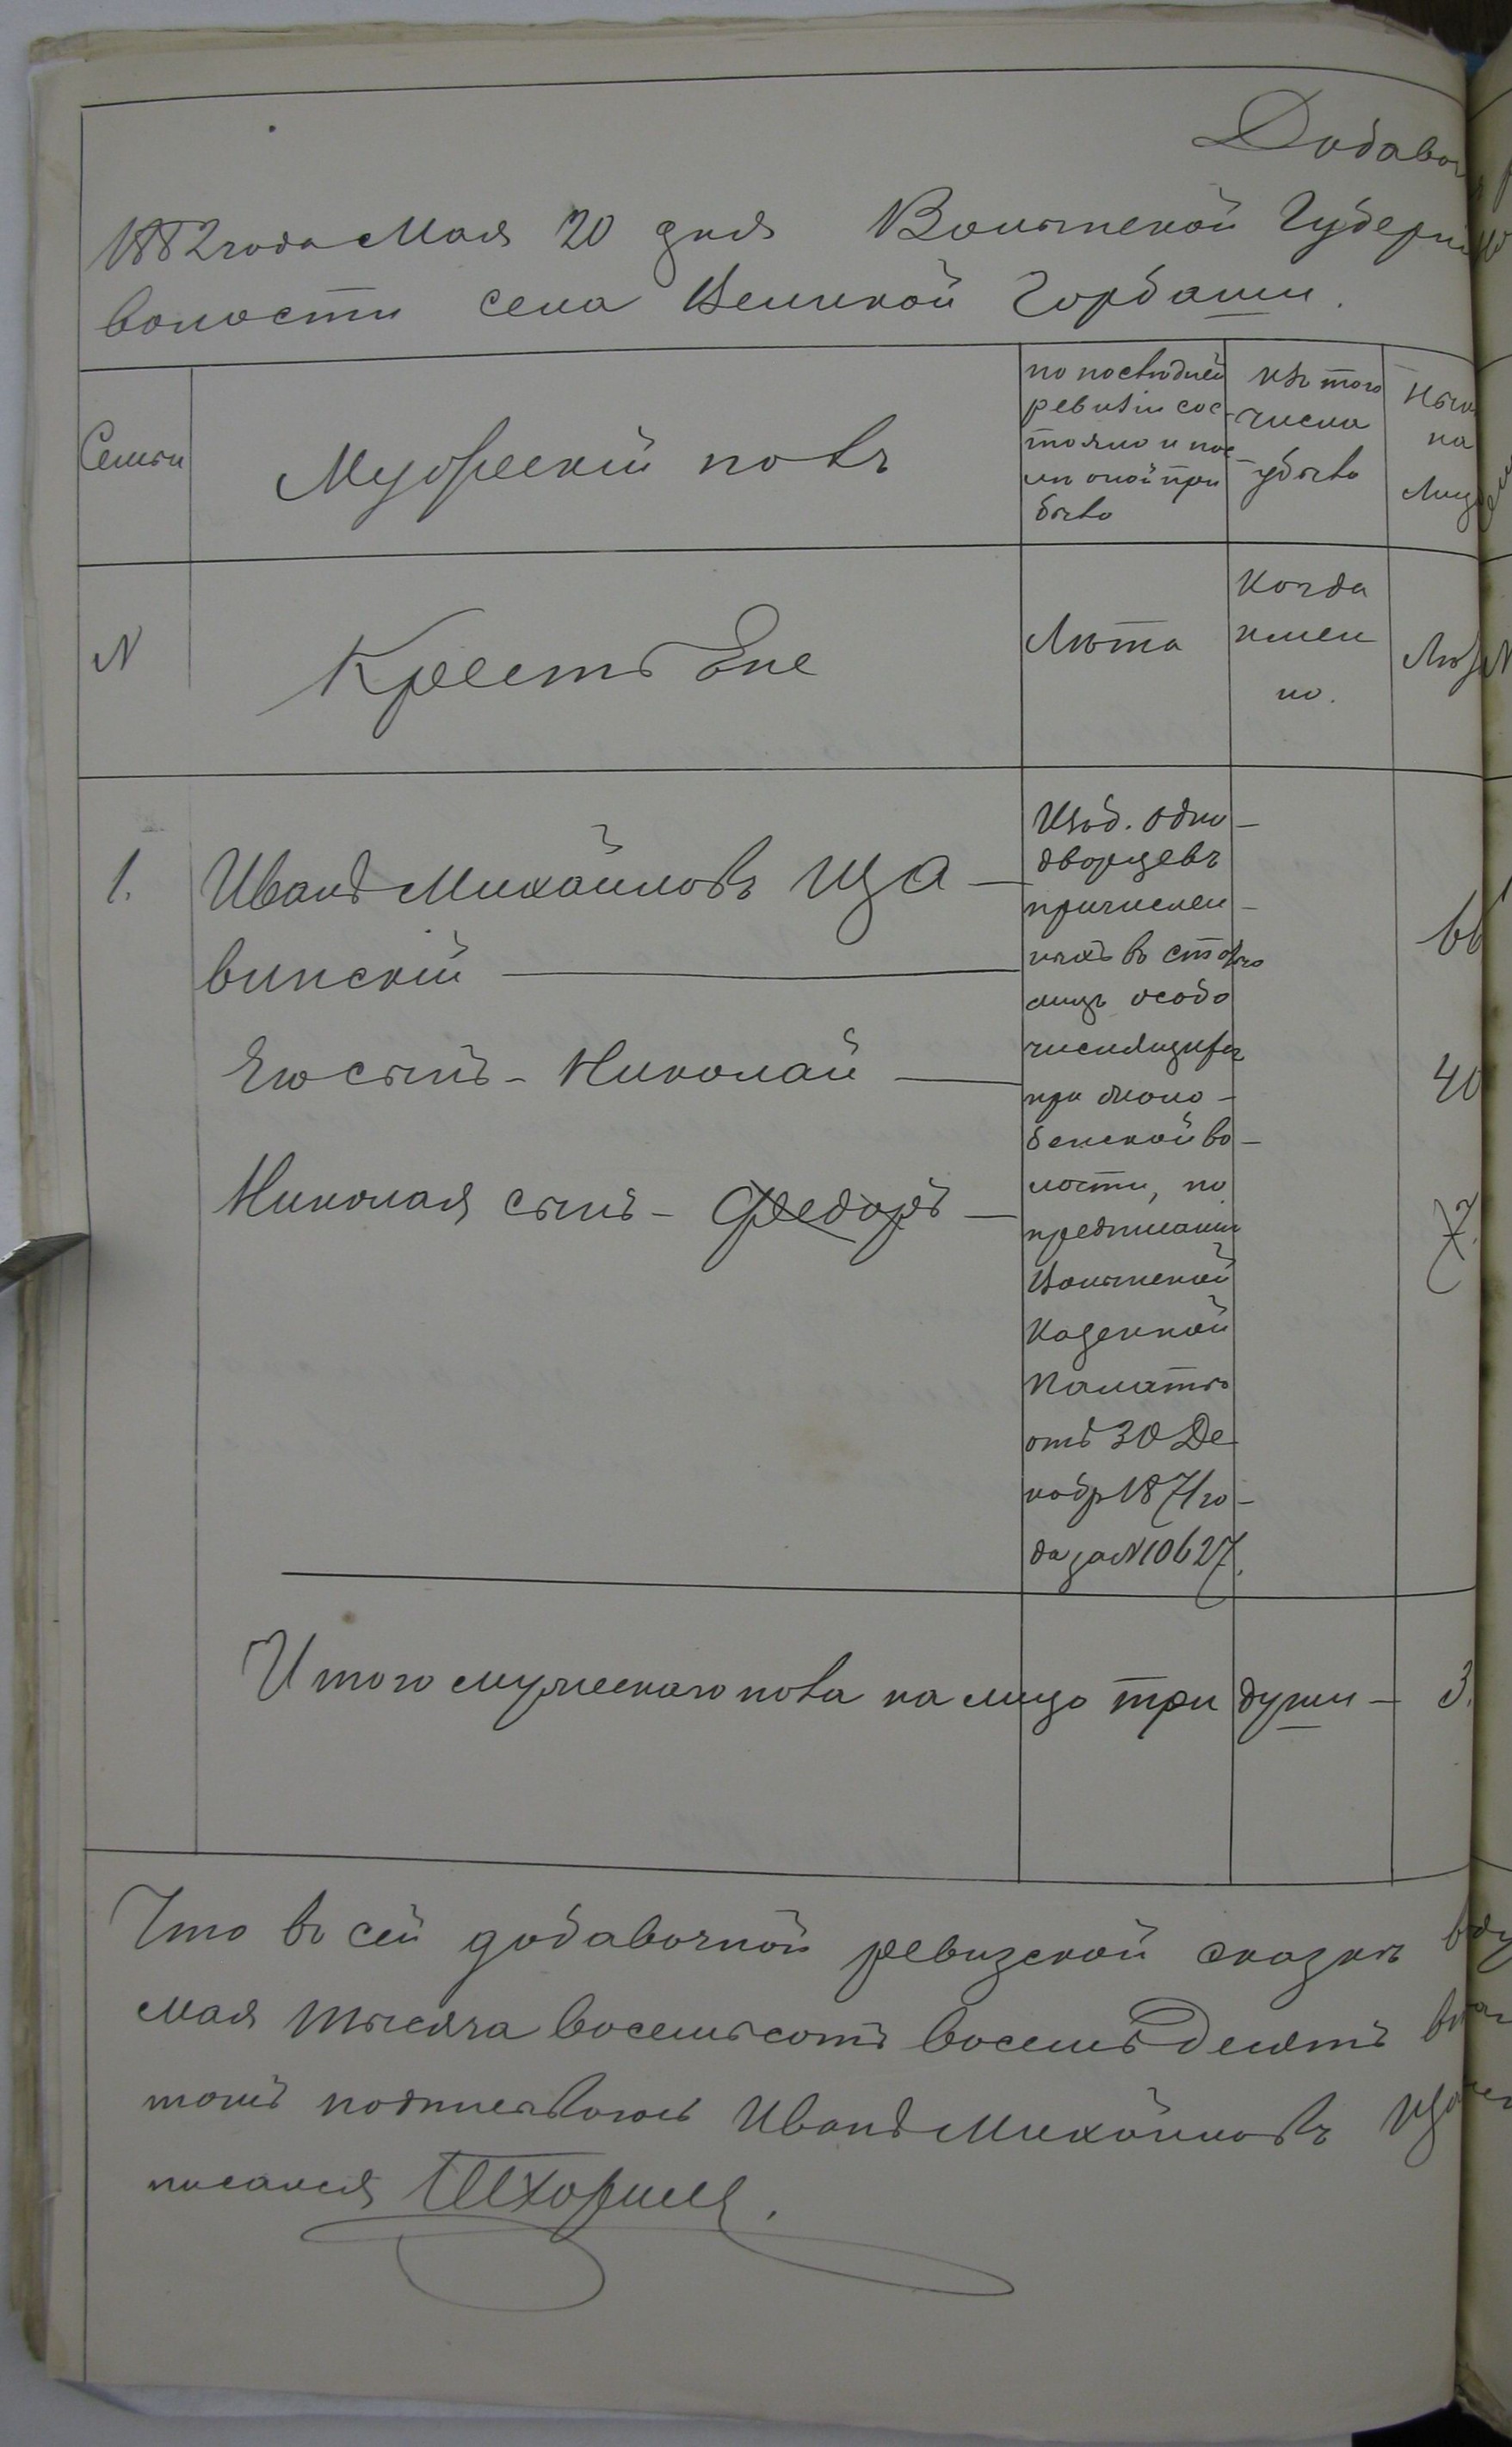 Добавоч
1882 года Мая 20 дня Волынской Губерни
волости села Великой Горбаши.
Семьи
Мужескій полъ
по послѣдней
ревизіи сос-
тояло и пос-
лѣ оной при
было
изъ того
числа
убыло
Нын
на
Лиц
N
Крестьяне
Лѣта
Когда
имен
но.
Лѣт
1. Иванъ Михайловъ Ща-
винскій
Его сынъ - Николай
Николая сынъ - Федоръ
Изъ б. одно-
дворцевъ
причислен-
ныхъ въ
лицъ особо
числящихся
при
бенской во-
лости, по
предписанію
Волынской
Казенной
Палаты
отъ 30 Де
кабр 1871 го-
да за N 10627.
66
40
7.
Итого мужескаго пола на лицо три души - 3.
Что въ сей добавочной ревизской сказкѣ
мая тысяча восемьсотъ восемьдесятъ
томъ подписываюсь Иванъ Михайловъ Ща
писался